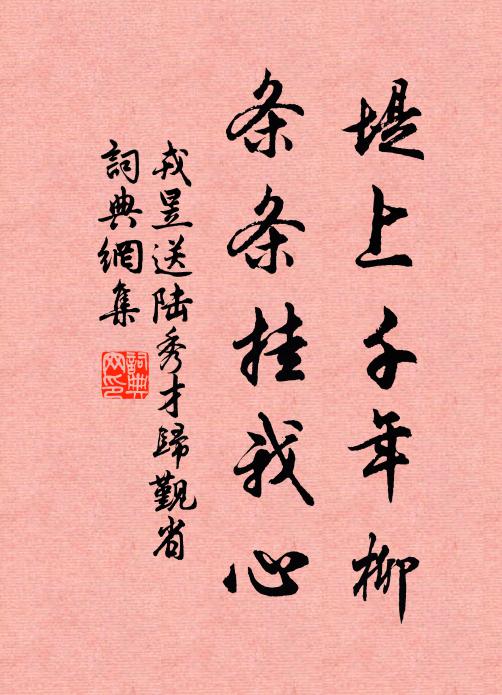 堤上千年柳
条条挂我心
戎昱送陆秀才歸觐省
詞典網集
詞典网印